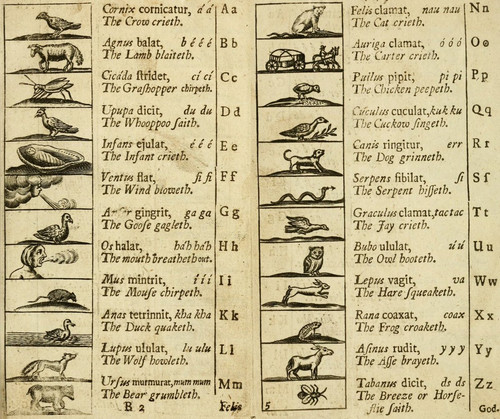 Cornix cornicatur, á á A a
The Crow crieth.
Agnus balat, b é é é B b
The Lamb blaiteth.
Cicáda stridet, cí cí C c
The Grashopper chirpeth.
Upupa dicit, du du D d
The Whooppoo saith.
Infans ejulat, é é é E e
The Infant crieth.
Ventus flat, fi fi F f
The Wind bloweth.
gingrit, ga ga G g
The Goose gagleth.
Os halat, há'h há'h H h
The mouth breatheth out.
Mus mintrit, í í í I i
The Mouse chirpeth.
Anas tetrinnit, kha kha K k
The Duck quaketh.
Lupus ululat, lu ulu L l
The Wolf howleth.
Ursus murmurat, mum mum M m
The Bear grumbleth.
B 2 Felis
Felis clamat, nau nau N n
The Cat crieth.
Auriga clamat, ó ó ó O o
The Carter crieth.
Pullus pipit, pi pi P p
The Chicken peepeth.
Cúculus cuculat, kuk ku Q q
The Cuckow singeth.
Canis ringitur, err R r
The Dog grinneth.
Serpens sibilat, si S s
The Serpent hisseth.
Graculus clamat, tac tac T t
The Jay crieth.
Bubo ululat, ú ú U u
The Owl hooteth.
Lepus vagit, va W w
The Hare squeaketh.
Rana coaxat, coax X x
The Frog croaketh.
Asinus rudit, y y y Y y
The Asse brayeth.
Tabanus dicit, ds ds Z z
The Breeze or Horse-
flie saith.
5 God